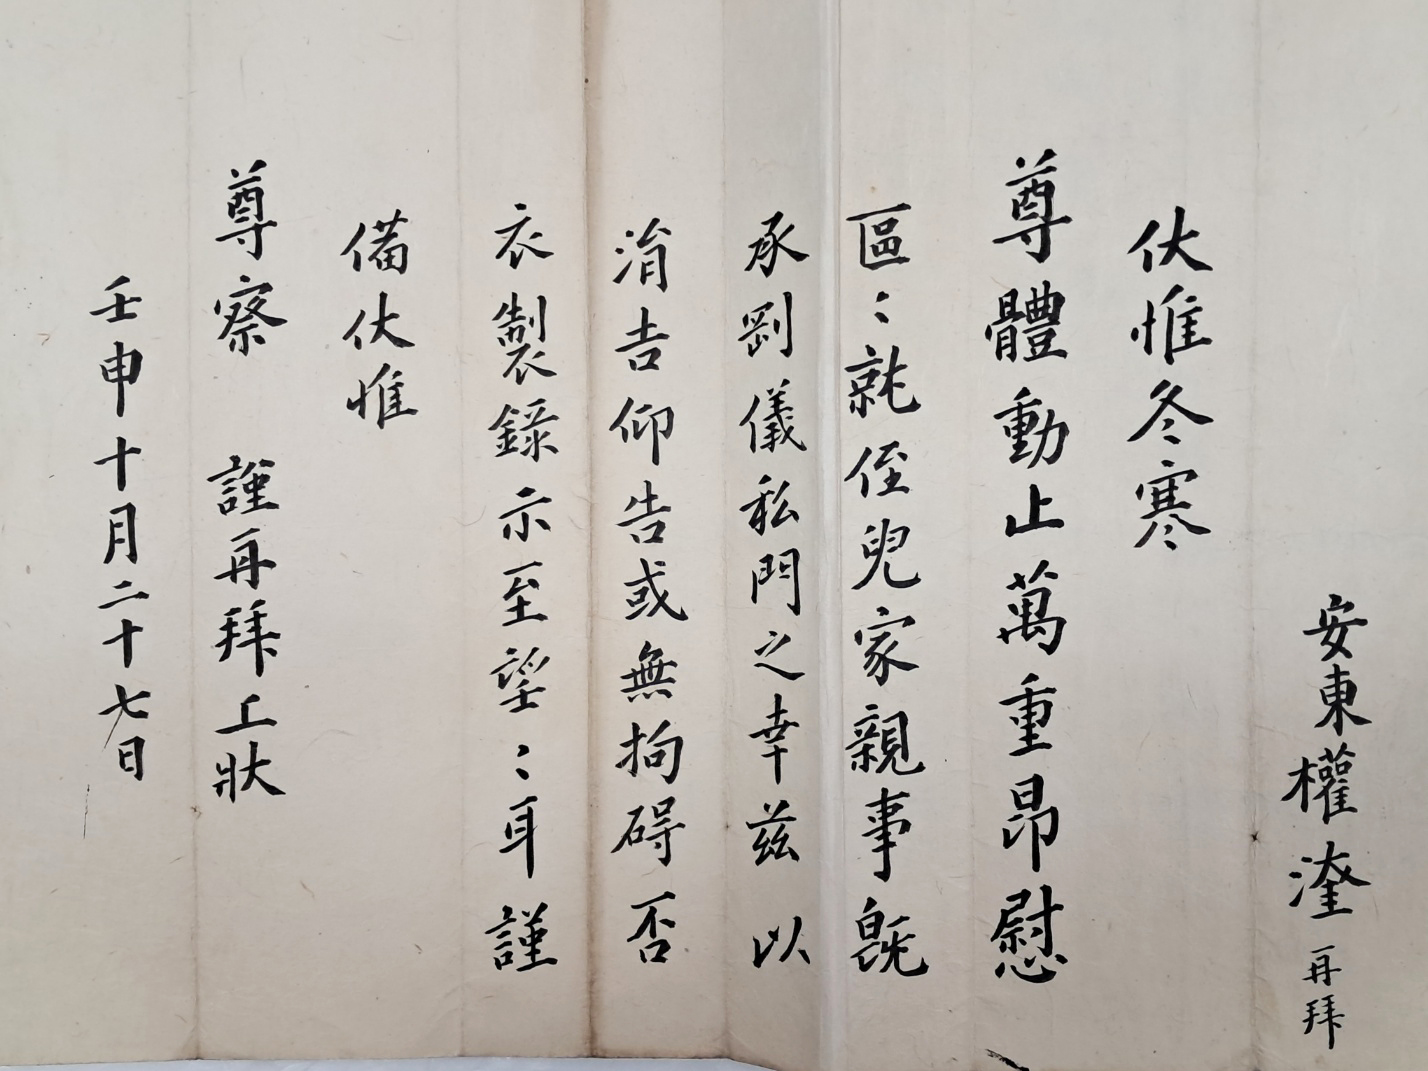 安東權瀣再拜
伏惟冬寒
尊體動止萬重昂慰
區〻就侄兒家親事旣
承剛儀私門之幸茲以
涓吉仰告或無拘碍否
衣製錄示至望〻耳謹
備伏惟
尊察 謹再拜上狀
壬申十月二十七日